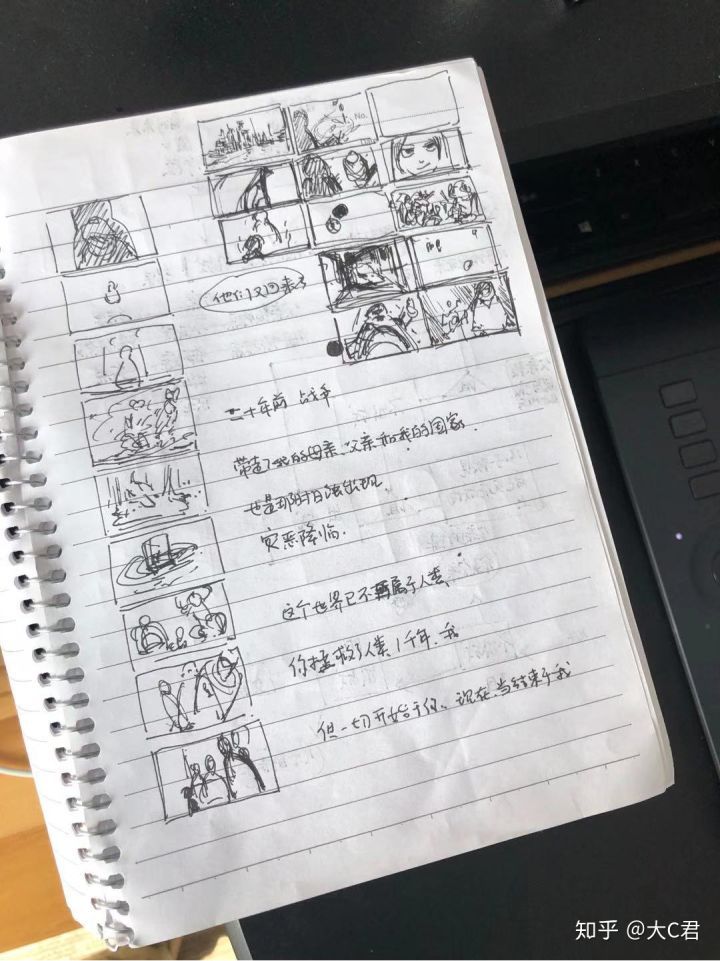 No.
他们又回来了
二十年前 战争
带走了我的母亲、父亲和我的国家.
也是那时 出现
灾恶降临.
这个世界已不再属于人类
你拯救了人类1千年.我
但一切开始于你、现在当结束于我
知乎 @大C君